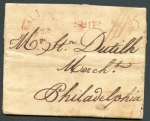 SHIP
Mr. Stn. Dutilh
Mercht.
Philadelphia